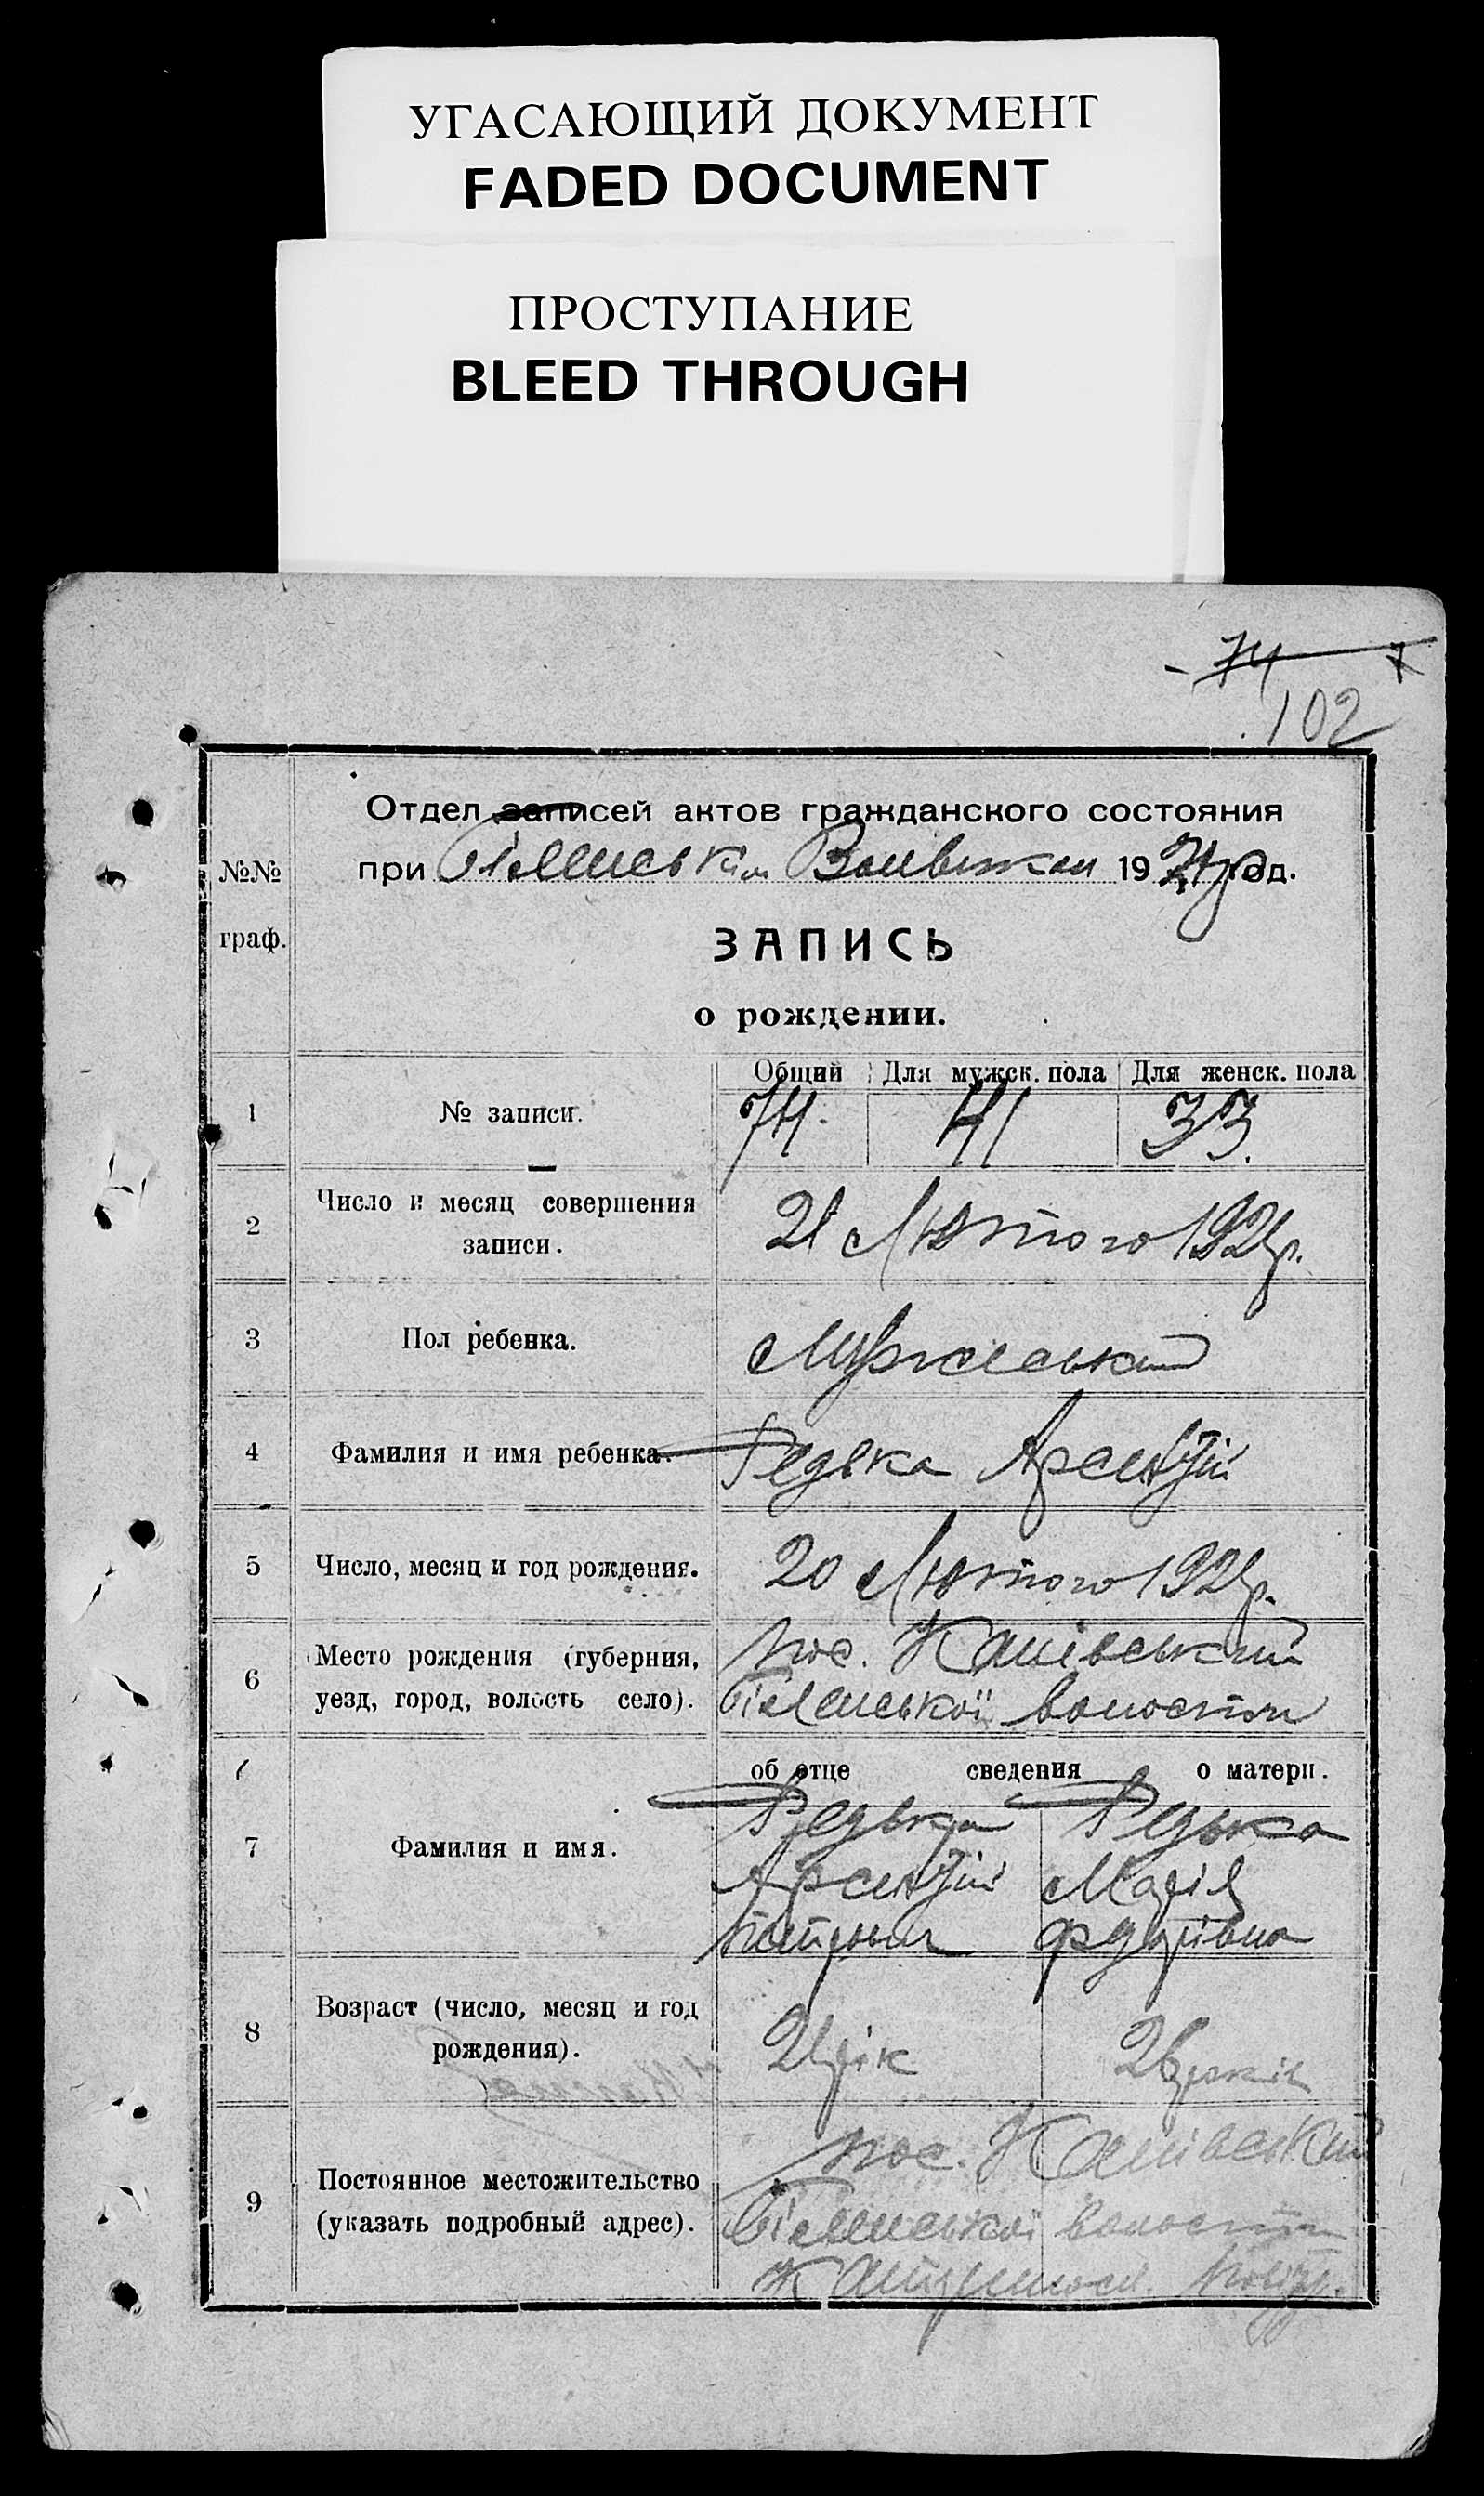 УГАСАЮЩИЙ ДОКУМЕНТ
FADED DOCUMENT
ПРОСТУПАНИЕ
BLEED THROUGH
74
102
№№ граф.
Отдел записей актов гражданского состояния
при 19 год.
ЗАПИСЬ
о рождении.
Общий Для мужск. пола Для женск. пола
1 № записи. 74. 41 33.
2 Число и месяц совершения
записи.
21 Лютого 192 р.
3 Пол ребенка. Мужеський
4 Фамилия и имя ребенка. Редька Арсентій
5 Число, месяц и год рождения. 20 Лютого 192 р.
6 Место рождения (губерния,
уезд, город, волость село).
пос. Канівський
Біленської волости
об отце сведения о матери.
7 Фамилия и имя.
Редька Редька
Арсентій Марія
Федорівна
8 Возраст (число, месяц и год
рождения).
21 рік 2 років
9 Постоянное местожительство
(указать подробный адрес).
пос. Канівський
Біленської волости